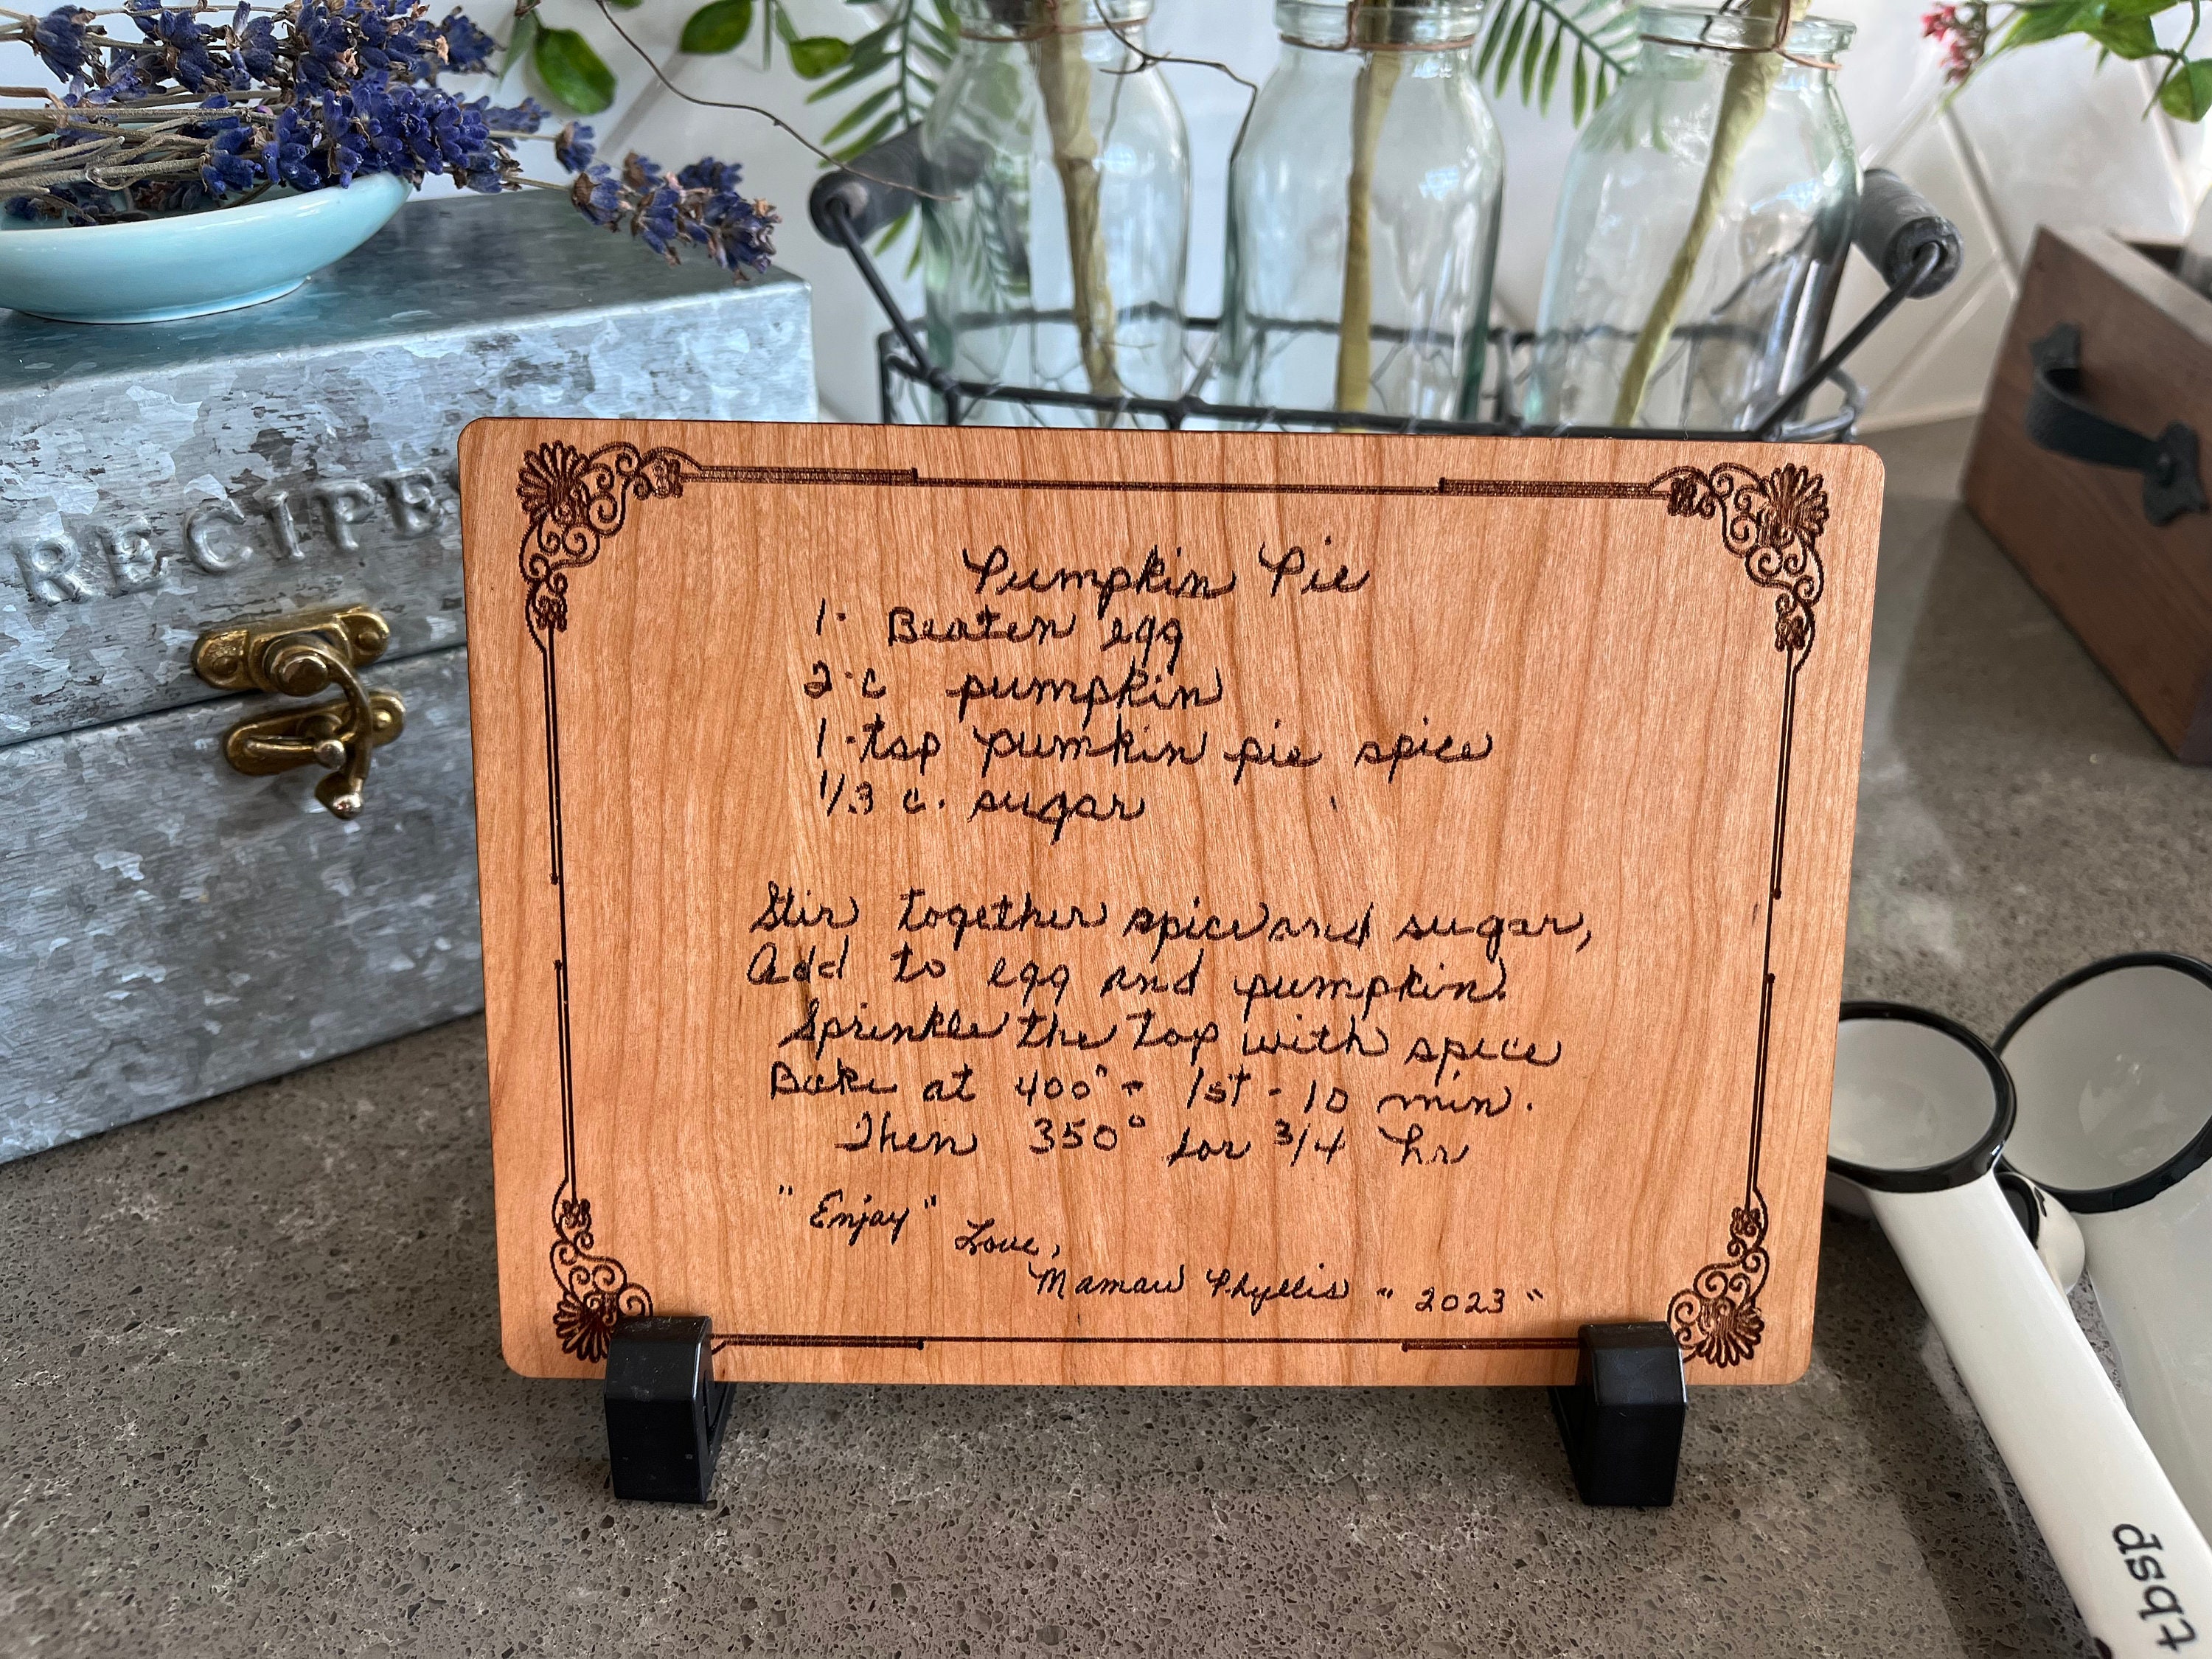 RECIPE
Pumpkin Pie
1. Beaten egg
2. c pumpkin
1. tsp pumkin pie spice
1/3 c. sugar
Stir together spice and sugar,
Add to egg and pumpkin.
Sprinkle the top with spice
Bake at 400° - 1st - 10 min.
Then 350° for 3/4 hr
"Enjoy"
Love,
Mamaw Phyllis "2023"
tbsp